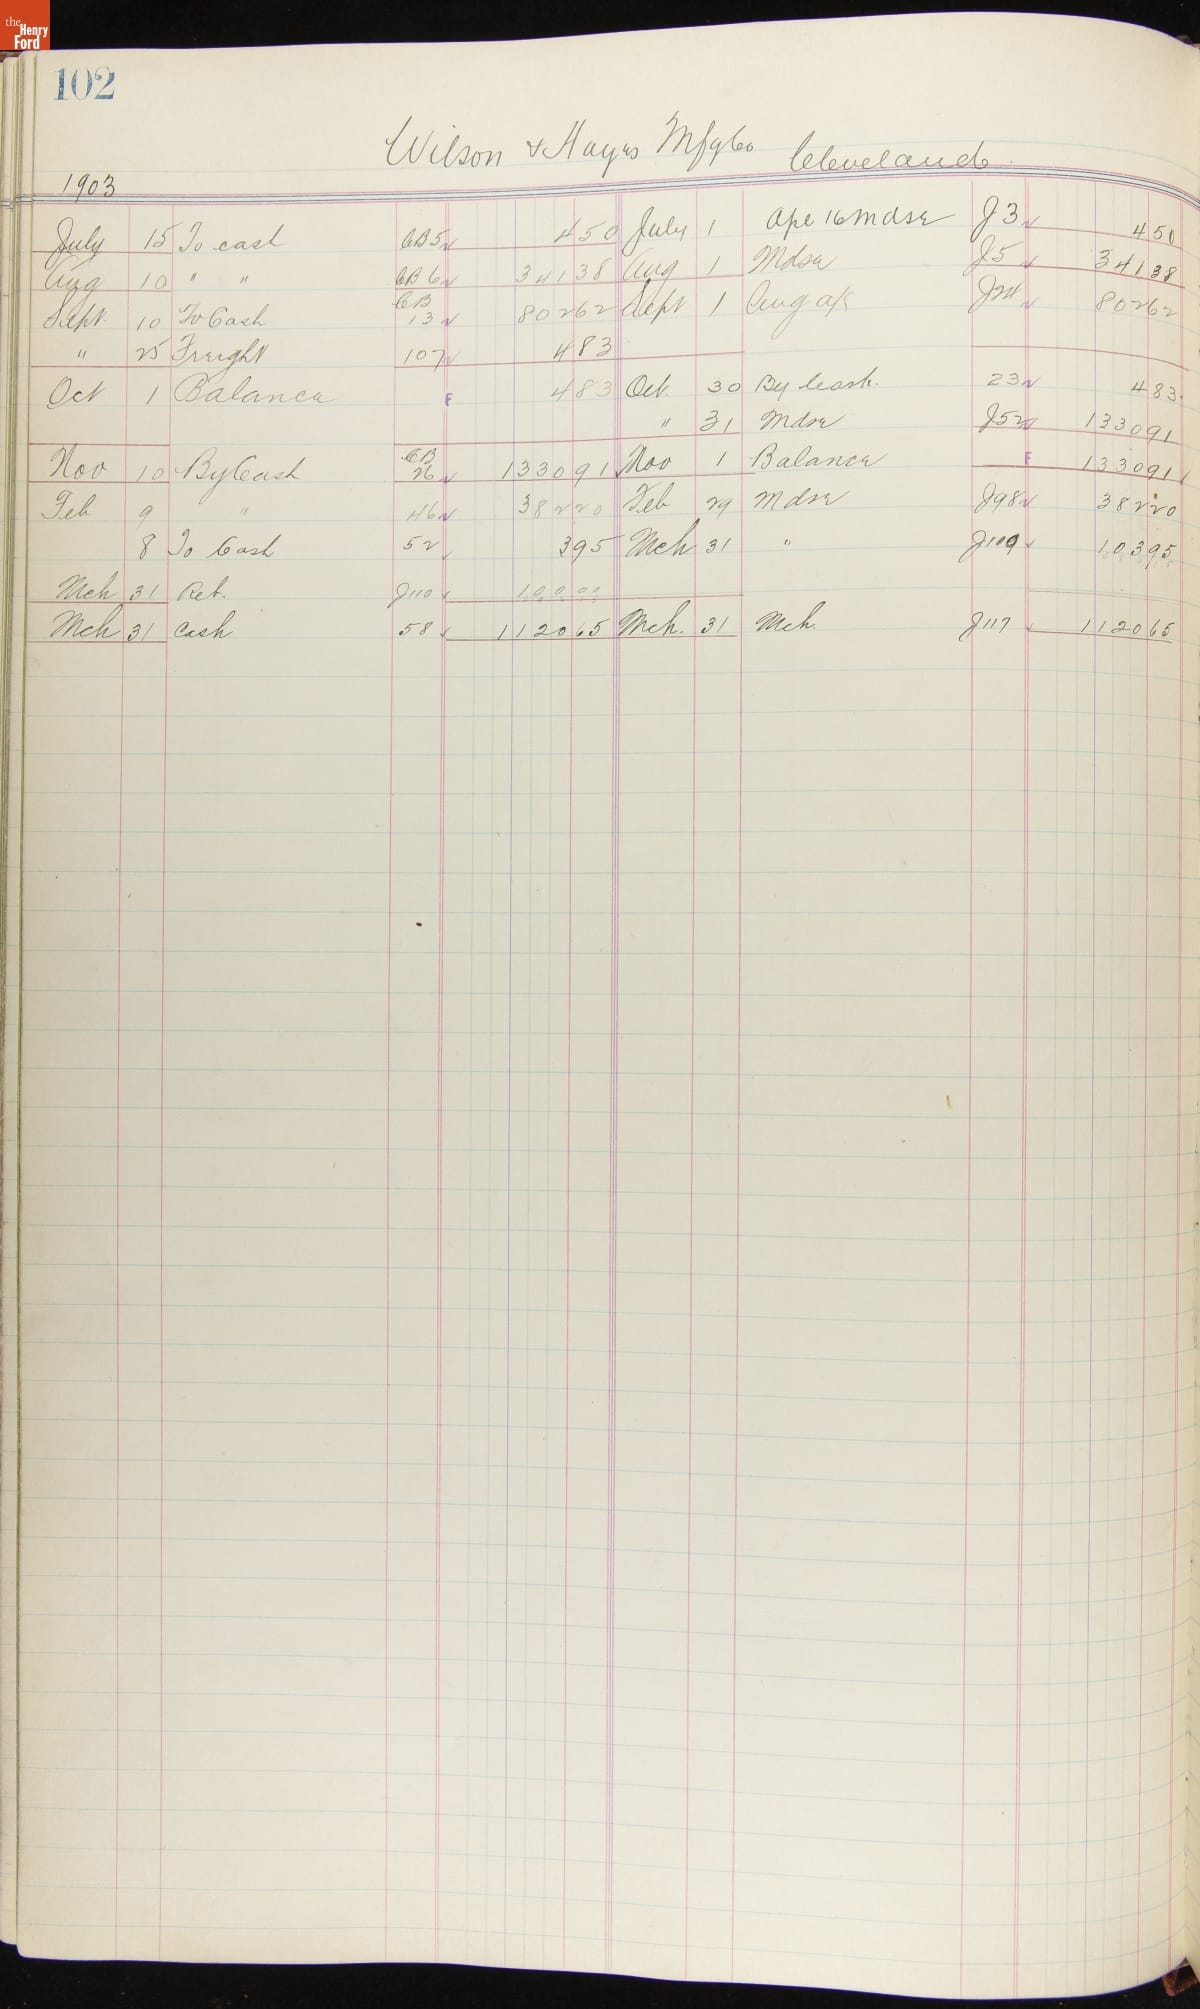 the Henry Ford
102
Wilson & Hayes Mfg Co Cleveland
1903
July 15 To cash CB5 450 July 1 Ape 16 Mdse J3 450
Aug 10 " " CB6 34138 Aug 1 Mdse J5 34138
Sept 10 To Cash CB 13 80262 Sept 1 Aug a/c 80262
" 25 Freight 107 483
Oct 1 Balance F 483 Oct. 30 By Cash. 23 483
" 31 Mdse J52 133091
Nov 10 By Cash CB 26 133091 Nov 1 Balance F 133091
Feb 9 " 46 38220 Feb 29 Mdse J98 38220
8 To Cash 52 395 Mch 31 " J109 10395
Mch 31 Ret. J110 10000
Mch 31 Cash 58 112065 Mch. 31 Mch. J117 112065